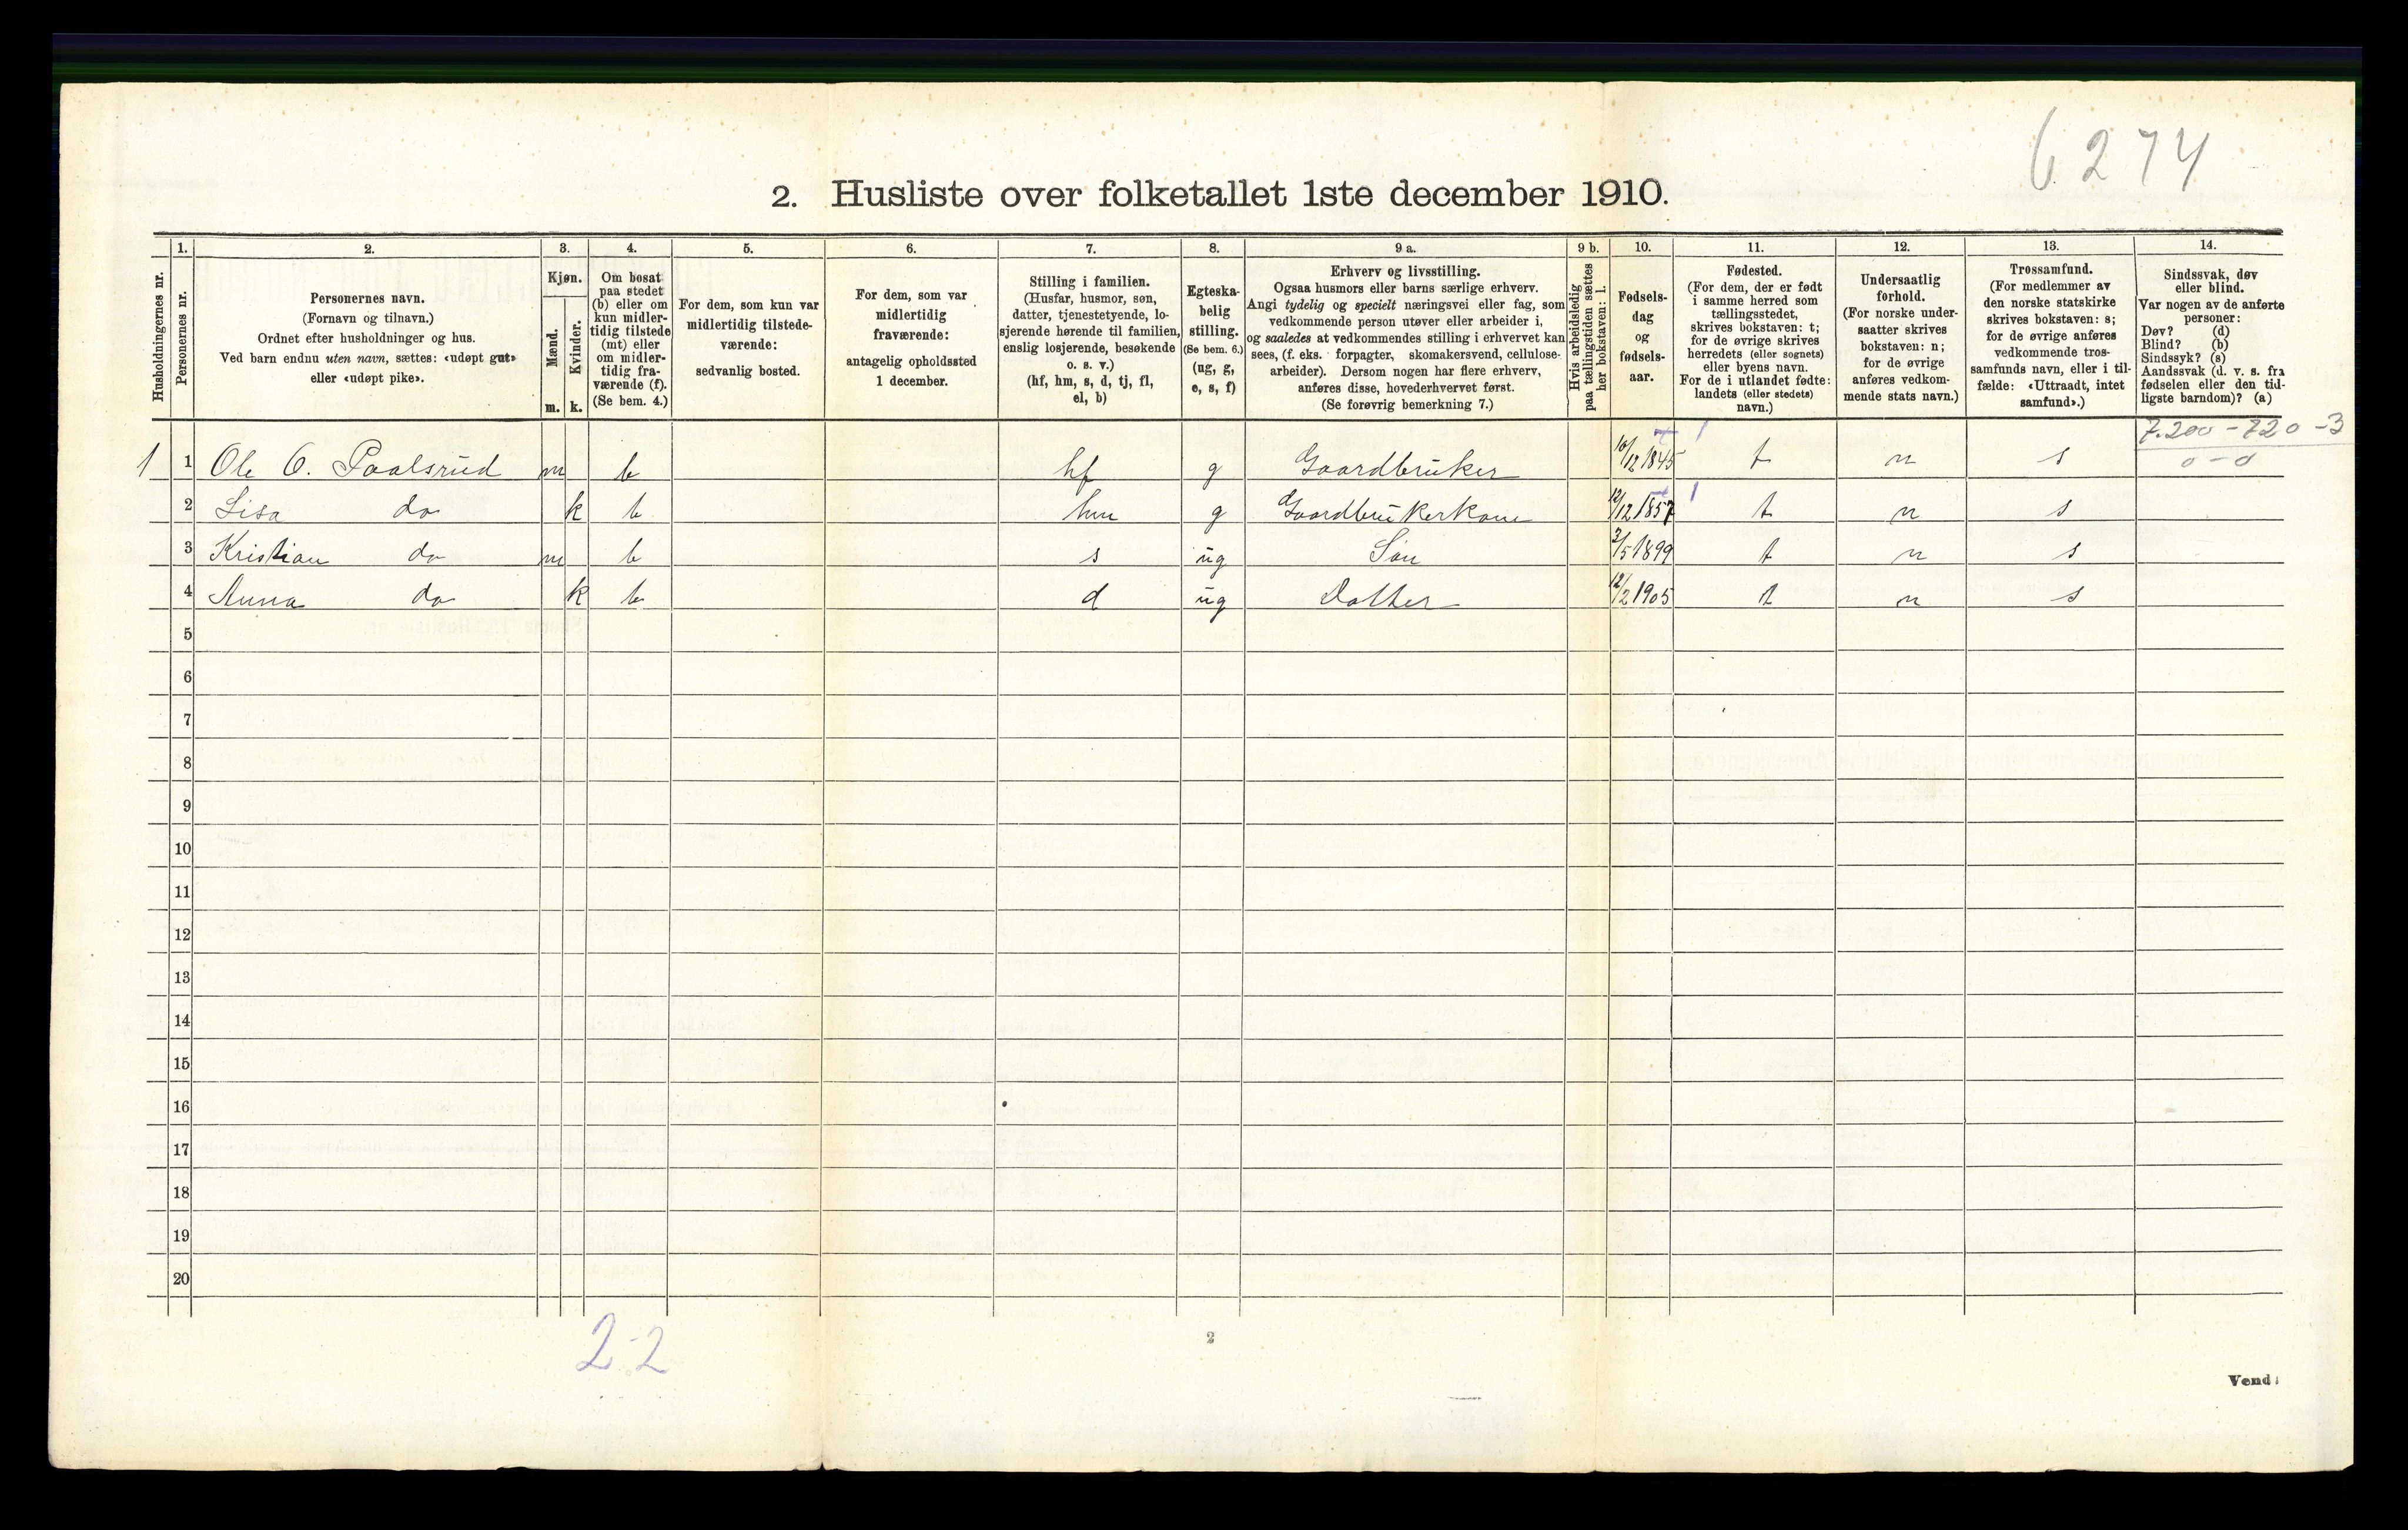 6274
2. Husliste over folketallet 1ste december 1910.
Husholdningernes nr.
1.
Personernes nr.
2.
Personernes navn.
(Fornavn og tilnavn.)
Ordnet efter husholdninger og hus.
Ved barn endnu uten navn, sættes: «udøpt gut»
eller «udøpt pike».
3.
Kjøn.
Mænd.
Kvinder.
m. k.
4.
Om bosat
paa stedet
(b) eller om
kun midler-
tidig tilstede
(mt) eller
om midler-
tidig fra-
værende (f).
(Se bem. 4.)
5.
For dem, som kun var
midlertidig tilstede-
værende:
sedvanlig bosted.
6.
For dem, som var
midlertidig
fraværende:
antagelig opholdssted
1 december.
7.
Stilling i familien.
(Husfar, husmor, søn,
datter, tjenestetyende, lo-
sjerende hørende til familien,
enslig losjerende, besøkende
o. s. v.)
(hf, hm, s, d, tj, fl,
el, b)
8.
Egteska-
belig
stilling.
(Se bem. 6.)
(ug, g,
e, s, f)
9 a.
Erhverv og livsstilling.
Ogsaa husmors eller barns særlige erhverv.
Angi tydelig og specielt næringsvei eller fag, som
vedkommende person utøver eller arbeider i,
og saaledes at vedkommendes stilling i erhvervet kan
sees, (f. eks. forpagter, skomakersvend, cellulose-
arbeider). Dersom nogen har flere erhverv,
anføres disse, hovederhvervet først.
(Se forøvrig bemerkning 7.)
9 b.
Hvis arbeidsledig
paa tællingstiden sættes
her bokstaven: l.
10.
Fødsels-
dag
og
fødsels-
aar.
11.
Fødested.
(For dem, der er født
i samme herred som
tællingsstedet,
skrives bokstaven: t;
for de øvrige skrives
herredets (eller sognets)
eller byens navn.
For de i utlandet fødte:
landets (eller stedets)
navn.)
12.
Undersaatlig
forhold.
(For norske under-
saatter skrives
bokstaven: n;
for de øvrige
anføres vedkom-
mende stats navn.)
13.
Trossamfund.
(For medlemmer av
den norske statskirke
skrives bokstaven: s;
for de øvrige anføres
vedkommende tros-
samfunds navn, eller i til-
fælde: «Uttraadt, intet
samfund».)
14.
Sindssvak, døv
eller blind.
Var nogen av de anførte
personer:
Døv? (d)
Blind? (b)
Sindssyk? (s)
Aandssvak (d. v. s. fra
fødselen eller den tid-
ligste barndom)? (a)
7.200 - 720 - 3
0 - 0
1 1 Ole O. Paalsrud m b hf g Gaardbruker 10/12 1845 t n s
2 Lisa do k b hm g Gaardbrukerkone 12/12 1857 t n s
3 Kristian do m b s ug Søn 3/5 1899 t n s
4 Anna do k b d ug Datter 12/2 1905 t n s
5
6
7
8
9
10
11
12
13
14
15
16
17
18
19
20
2-2
2
Vend!